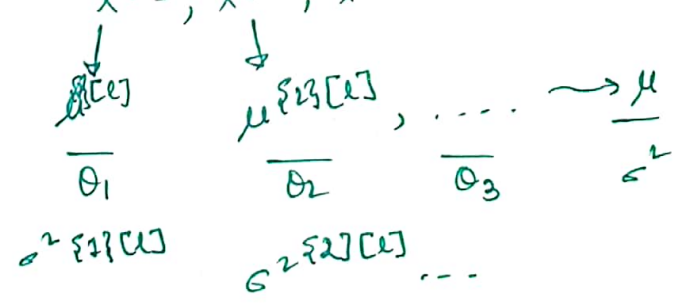 X , X , X
↓ ↓
μ^{[l]} μ^{{2}[l]} , ..... → μ
θ₁ θ₂ θ₃ σ²
σ²^{{1}[l]} σ²^{{2}[l]} ...